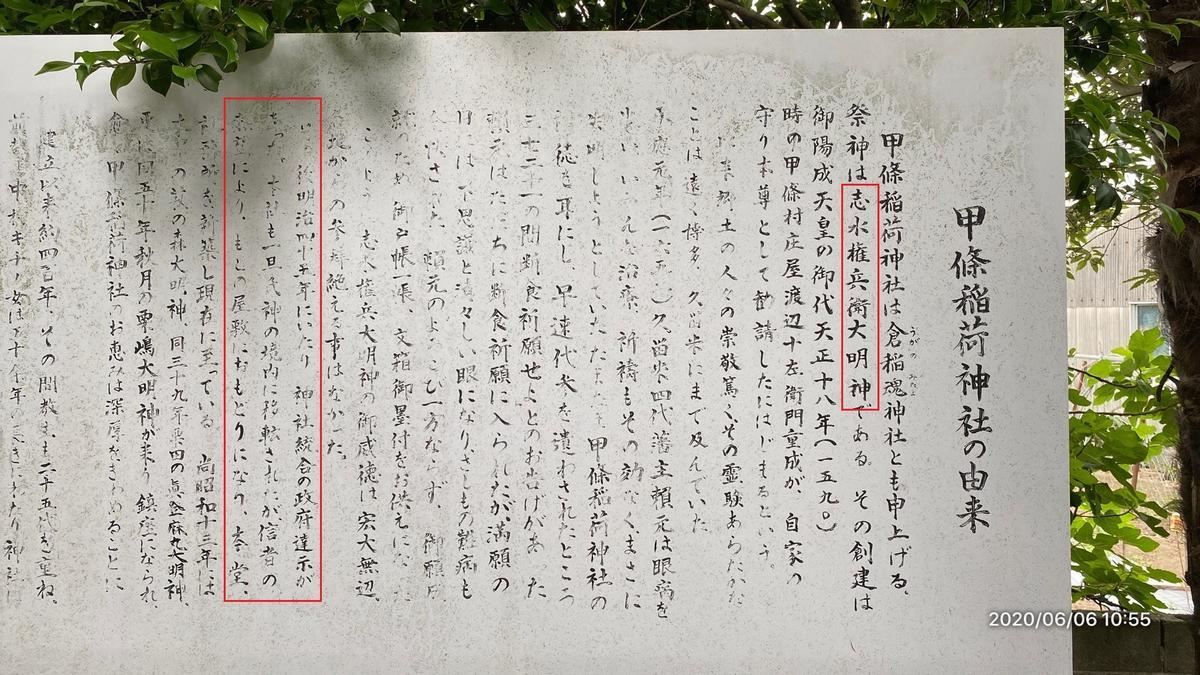 甲條稲荷神社の由来
甲條稲荷神社は倉稲魂神社とも申上げる。
うがの みたま
祭神は志水権兵衛大明神である。その創建は
御陽成天皇の御代天正十八年(一五九〇)
時の甲條村庄屋渡辺十左衛門重成が、自家の
守り本尊として勧請したにはじまるという。
来郷土の人々の崇敬篤くその霊験あらたかな
ことは遠く博多、久留米にまで及んでいた
承應元年(一六五 )久留米四代藩主頼元は眼病を
治療、祈祷もその効なくまさに
失明しようとしていたたまたま甲條稲荷神社の
徒を耳にし早速代米を遣わされたところ
三七二十一の間断食祈願せよとのお告げがあった
頼元はただちに断食祈願に入られたが、満願の
日は不思議と清々しい眼になりさしもの難病も
頼元のよろこび一方ならず、御願
御台帳一張、文箱御墨付をお供えになった
志水権兵大明神の御威徳は宏大無辺、
からの参拝絶える事はなかった。
後明治四十五年にいたり神社統合の政府達示が
あつ も一旦氏神の境内に移転されたが、信者の
により、もとの屋敷におもどりになり、本堂、
を新築し現在に至っている。尚昭和十三年には
の森大明神、同三十九年 四の 大明神、
同五十年秋月の栗嶋大明神が来り鎮座になられ
甲條稲荷神社のお恵みは深厚をきわめることに
建立以来約四百年、その間教主も二十五代を重ね、
神社
2020/06/06 10:55